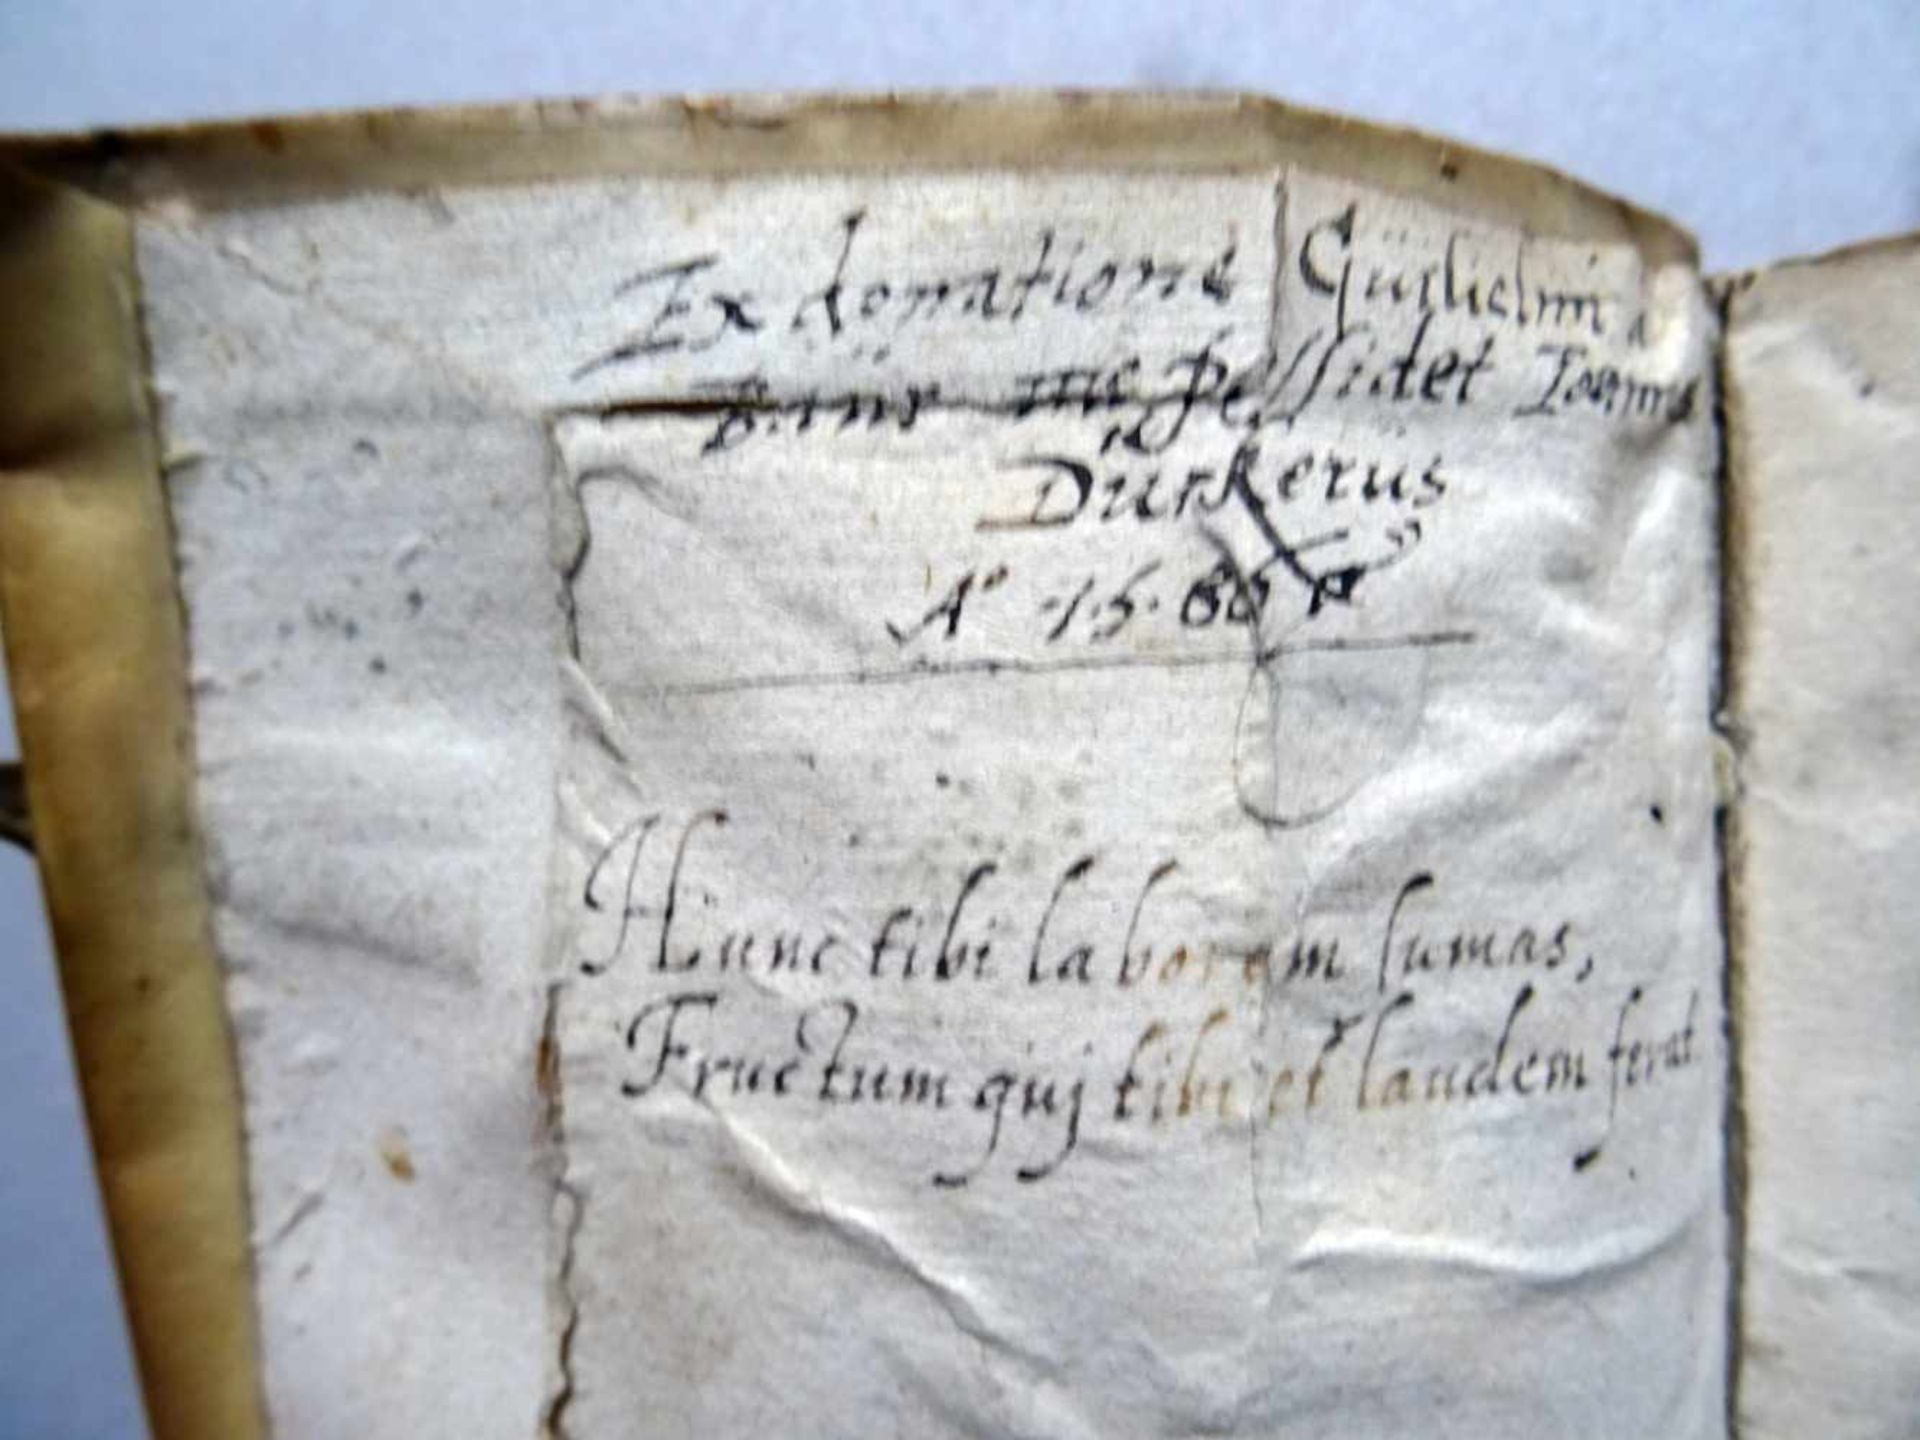 Ex donatione Guilielmi a
me possidet Ioannes
Durkerus
A° 1.5.
Hunc tibi laborem sumas,
Fructum quj tibi et laudem ferat